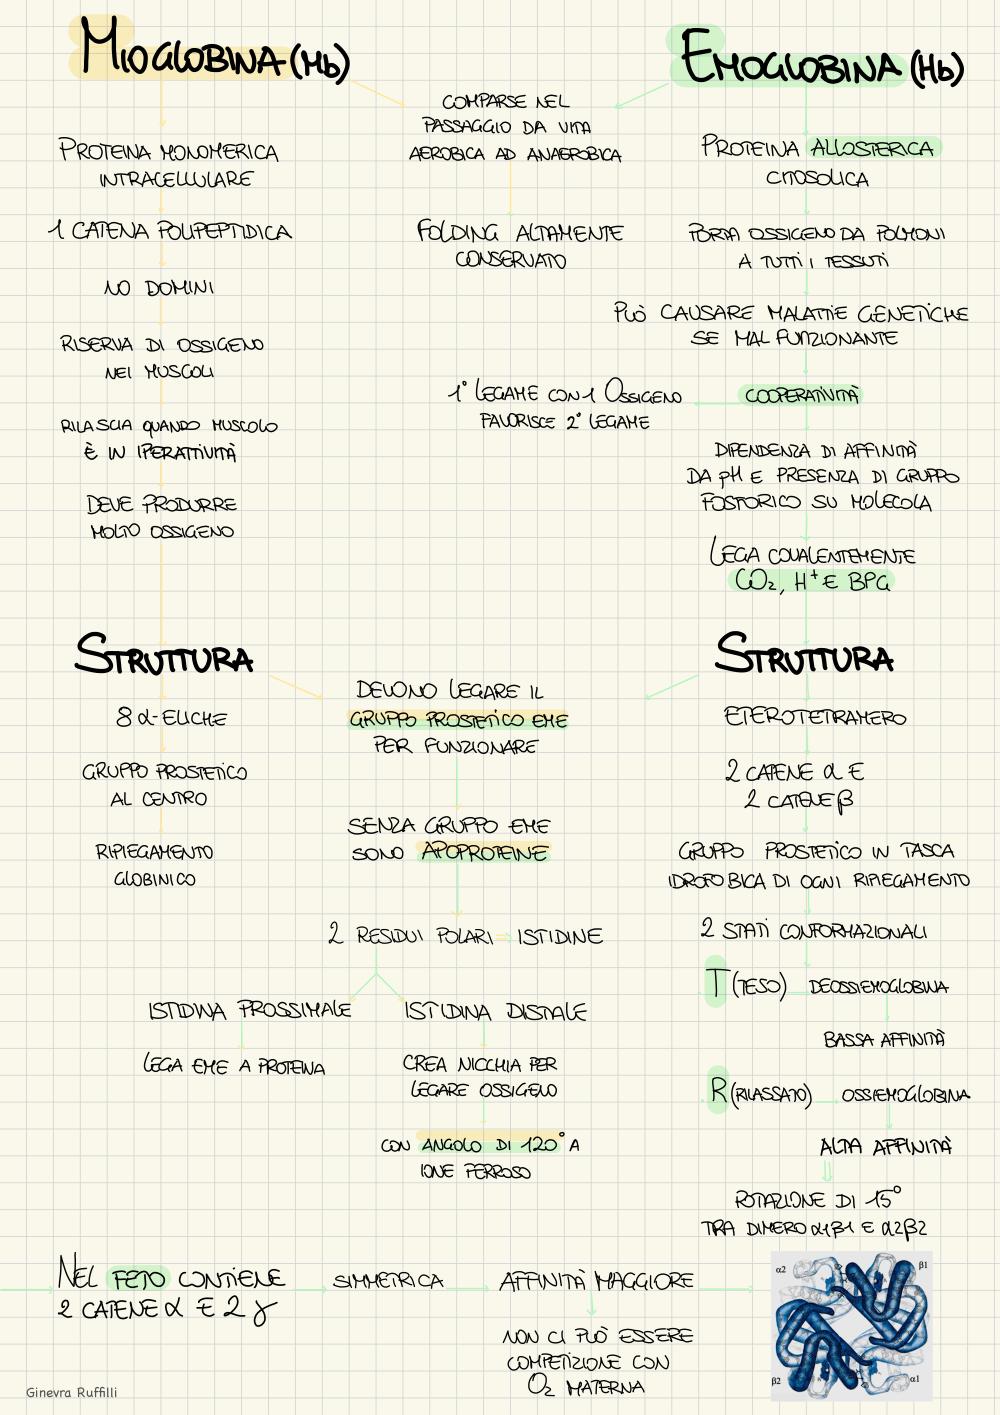 MIOGLOBINA (Mb)
PROTEINA MONOMERICA
INTRACELLULARE
1 CATENA POLIPEPTIDICA
NO DOMINI
RISERVA DI OSSIGENO
NEI MUSCOLI
RILASCIA QUANDO MUSCOLO
È IN IPERATTIVITÀ
DEVE PRODURRE
MOLTO OSSIGENO
COMPARSE NEL
PASSAGGIO DA VITA
AEROBICA AD ANAEROBICA
FOLDING ALTAMENTE
CONSERVATO
EMOGLOBINA (Hb)
PROTEINA ALLOSTERICA
CITOSOLICA
PORTA OSSIGENO DA POLMONI
A TUTTI I TESSUTI
PUÒ CAUSARE MALATTIE GENETICHE
SE MAL FUNZIONANTE
COOPERATIVITÀ
1° LEGAME CON 1 OSSIGENO
FAVORISCE 2° LEGAME
DIPENDENZA DI AFFINITÀ
DA pH E PRESENZA DI GRUPPO
FOSFORICO SU MOLECOLA
LEGA COVALENTEMENTE
CO₂, H⁺ E BPG
STRUTTURA
8 α-ELICHE
GRUPPO PROSTETICO
AL CENTRO
RIPIEGAMENTO
GLOBINICO
DEVONO LEGARE IL
GRUPPO PROSTETICO EME
PER FUNZIONARE
SENZA GRUPPO EME
SONO APOPROTEINE
2 RESIDUI POLARI ⇒ ISTIDINE
ISTIDINA PROSSIMALE
LEGA EME A PROTEINA
ISTIDINA DISTALE
CREA NICCHIA PER
LEGARE OSSIGENO
CON ANGOLO DI 120° A
IONE FERROSO
STRUTTURA
ETEROTETRAMERO
2 CATENE α E
2 CATENE β
GRUPPO PROSTETICO IN TASCA
IDROFOBICA DI OGNI RIPIEGAMENTO
2 STATI CONFORMAZIONALI
T (TESO) DEOSSIEMOGLOBINA
BASSA AFFINITÀ
R (RILASSATO) OSSIEMOGLOBINA
ALTA AFFINITÀ
ROTAZIONE DI 15°
TRA DIMERO α1β1 E α2β2
NEL FETO CONTIENE
2 CATENE α E 2 γ
SIMMETRICA
AFFINITÀ MAGGIORE
NON CI PUÒ ESSERE
COMPETIZIONE CON
O₂ MATERNA
α2 β1
β2 α1
Ginevra Ruffilli